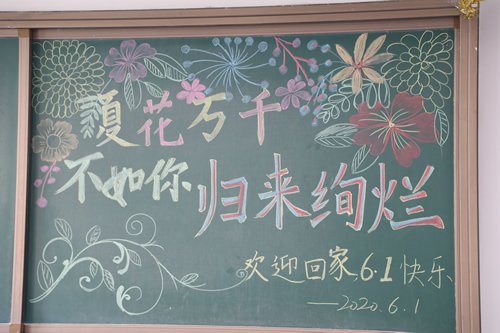 夏花万千
不如你归来绚烂
欢迎回家,6.1快乐
——2020.6.1